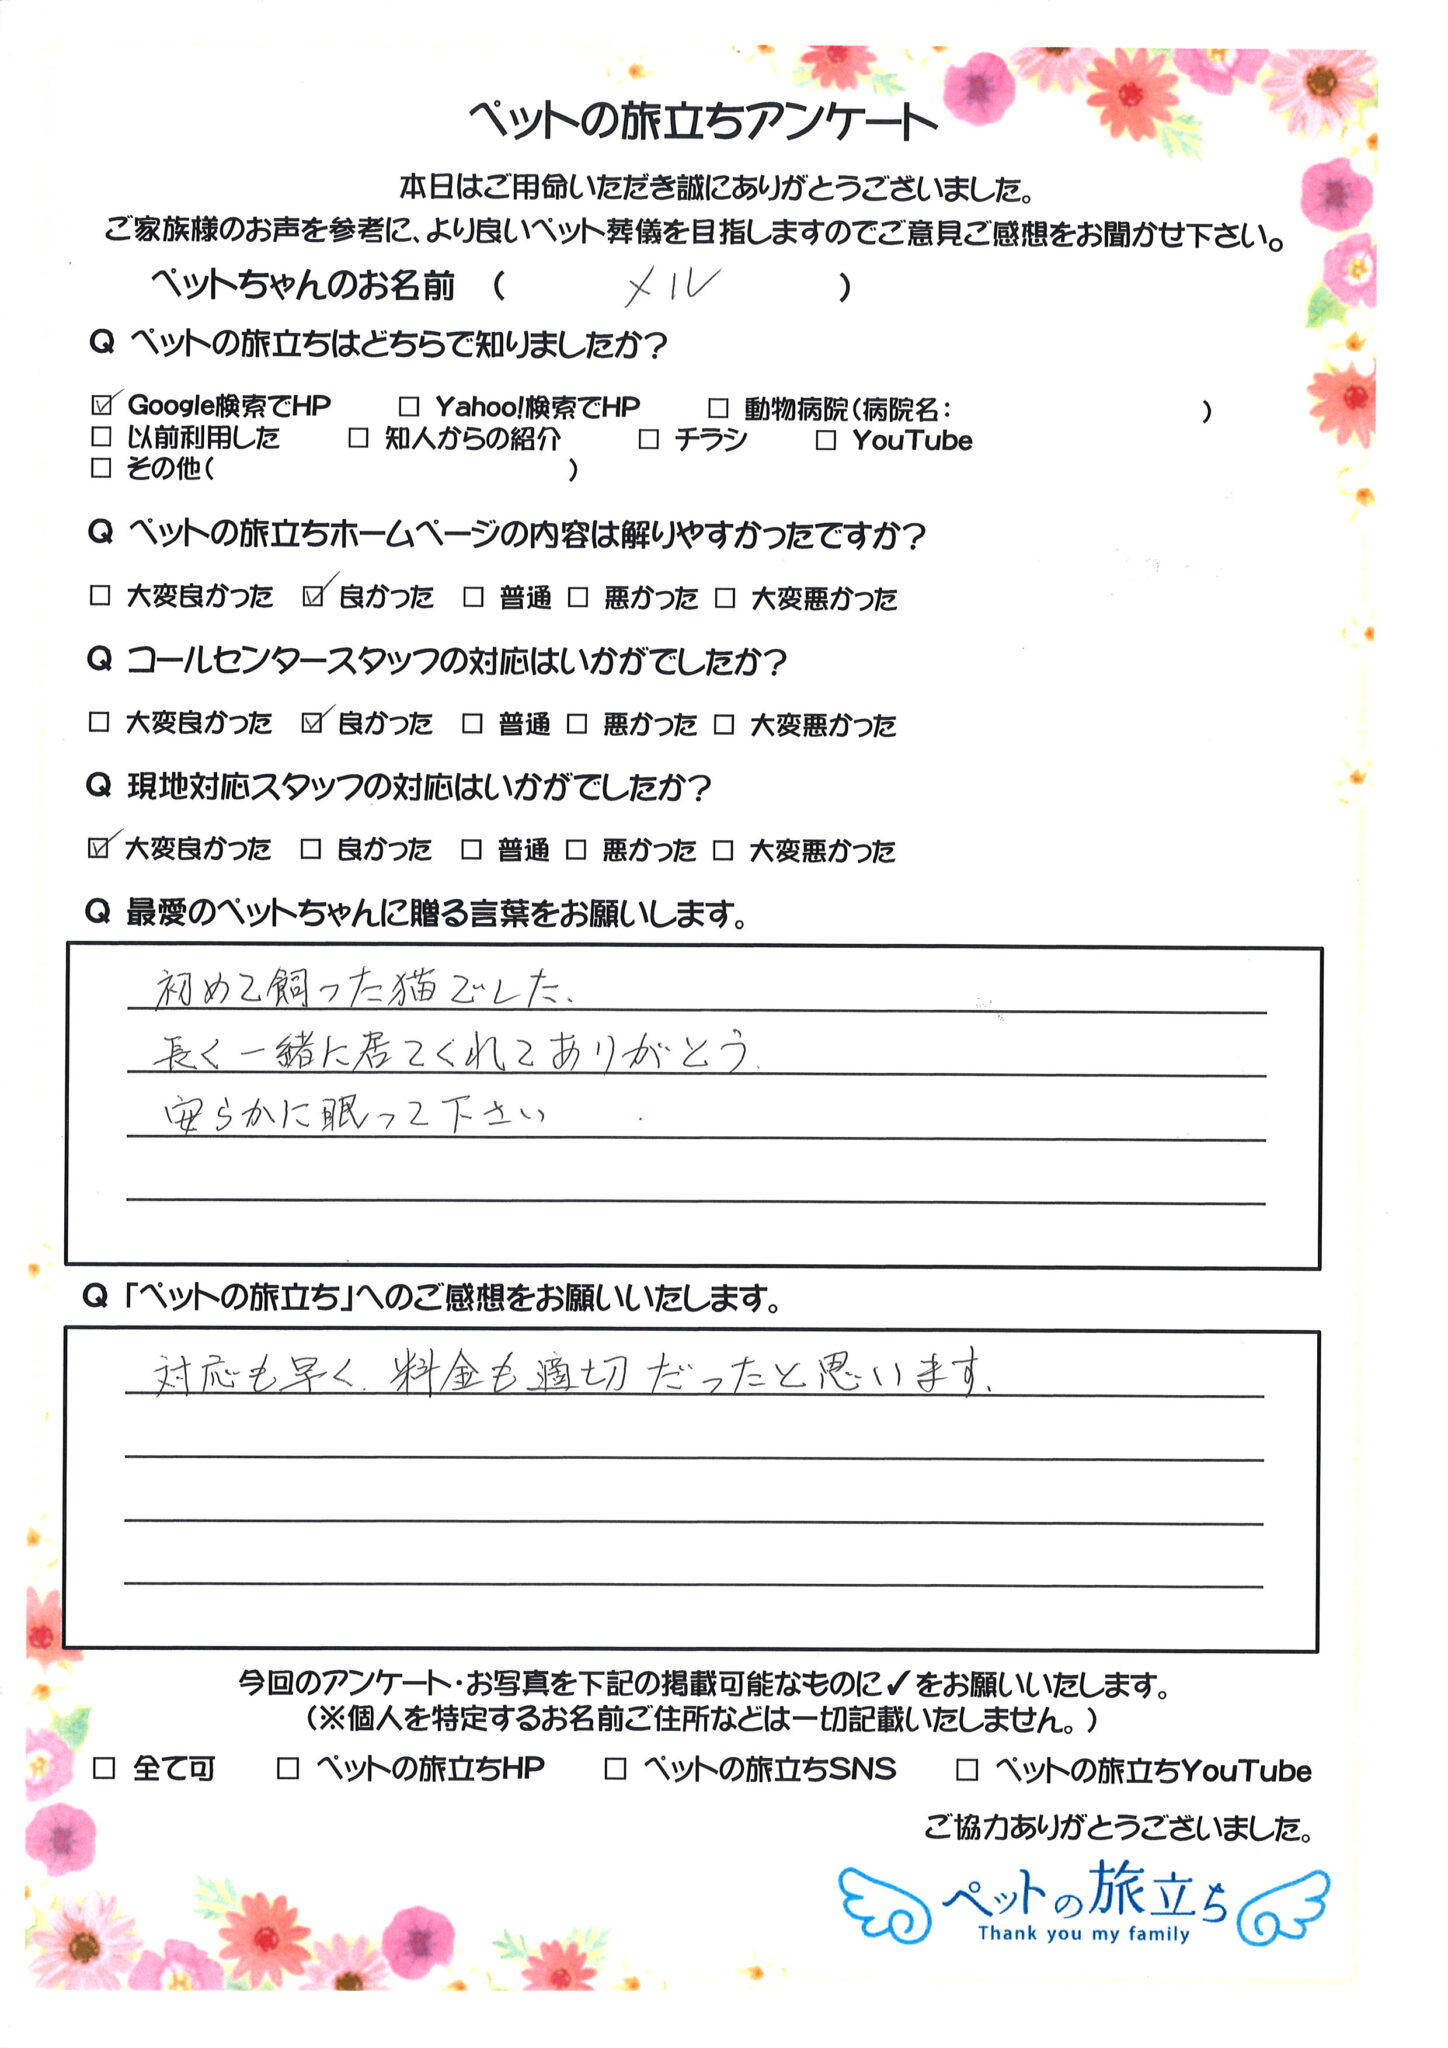 ペットの旅立ちアンケート
本日はご用命いただき誠にありがとうございました。
ご家族様のお声を参考に、より良いペット葬儀を目指しますのでご意見ご感想をお聞かせ下さい。
ペットちゃんのお名前 ( メル )
Q ペットの旅立ちはどちらで知りましたか?
☑ Google検索でHP □ Yahoo!検索でHP □ 動物病院(病院名: )
□ 以前利用した □ 知人からの紹介 □ チラシ □ YouTube
□ その他( )
Q ペットの旅立ちホームページの内容は解りやすかったですか?
□ 大変良かった ☑ 良かった □ 普通 □ 悪かった □ 大変悪かった
Q コールセンタースタッフの対応はいかがでしたか?
□ 大変良かった ☑ 良かった □ 普通 □ 悪かった □ 大変悪かった
Q 現地対応スタッフの対応はいかがでしたか?
☑ 大変良かった □ 良かった □ 普通 □ 悪かった □ 大変悪かった
Q 最愛のペットちゃんに贈る言葉をお願いします。
初めて飼った猫でした、
長く一緒に居てくれてありがとう、
安らかに眠って下さい
Q 「ペットの旅立ち」へのご感想をお願いいたします。
対応も早く、料金も適切だったと思います、
今回のアンケート・お写真を下記の掲載可能なものに✓をお願いいたします。
(※個人を特定するお名前ご住所などは一切記載いたしません。)
□ 全て可 □ ペットの旅立ちHP □ ペットの旅立ちSNS □ ペットの旅立ちYouTube
ご協力ありがとうございました。
ペットの旅立ち
Thank you my family